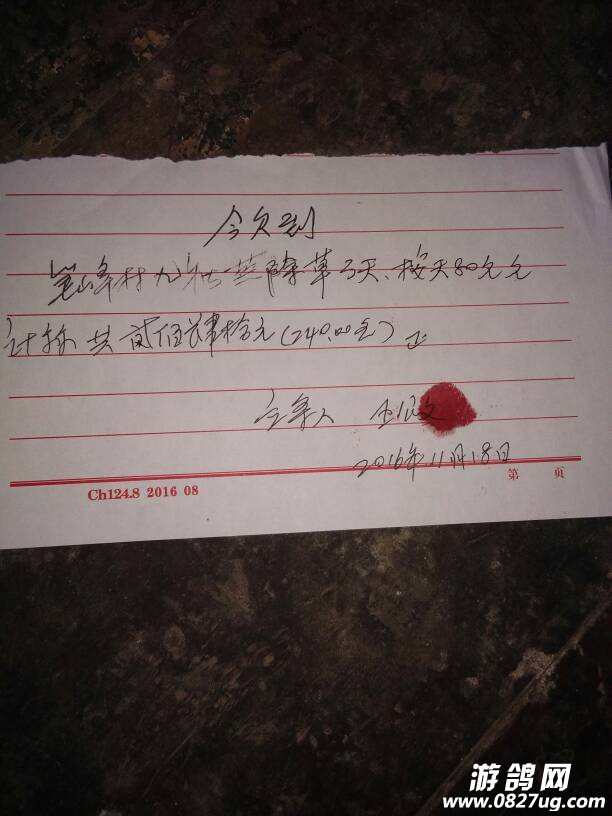 今欠到
笔峰村九社 除草3天、按天80元
计算 共贰佰肆拾元(240.00元) 正
立条人 文
2016年11月18日
第 页
Ch124.8 2016 08
游鸽网
www.0827ug.com